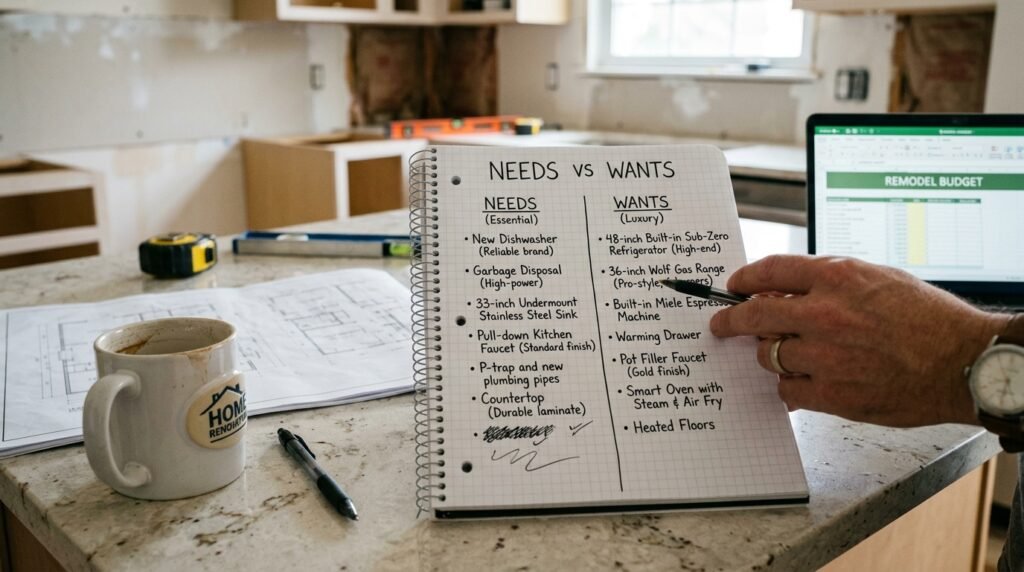 NEEDS vs WANTS
NEEDS
(Essential)
• New Dishwasher
(Reliable brand)
• Garbage Disposal
(High-power)
• 33-inch Undermount
Stainless Steel Sink
• Pull-down Kitchen
Faucet (Standard finish)
• P-trap and new
plumbing pipes
• Countertop
(Durable laminate)
WANTS
(Luxury)
• 48-inch Built-in Sub-Zero
Refrigerator (High-end)
• 36-inch Wolf Gas Range
(Pro-style,
• Built-in Miele Espresso
Machine
• Warming Drawer
• Pot Filler Faucet
(Gold finish)
• Smart Oven with
Steam & Air Fry
• Heated Floors
HOME
REMODEL BUDGET